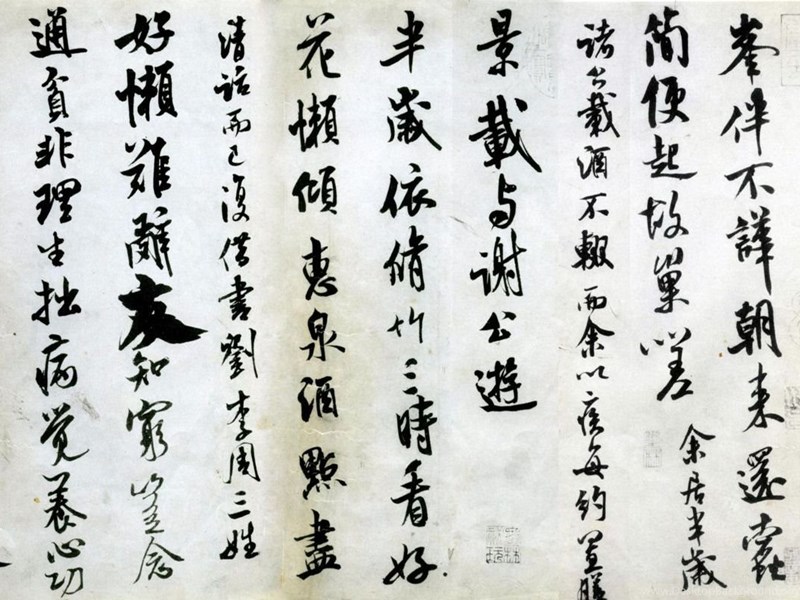 峯伴不譁朝来還蠹
簡便起故巢嗟 余居半歲
諸公載酒不輟而余以疾每約置膳
景載与謝公遊
半歲依脩竹三時看好
花懶傾惠泉酒點盡
清話而已復借書劉李周三姓
好懶難辭友知窮豈念
通貧非理生拙病覺養心功